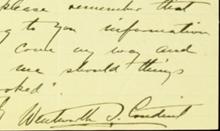 please remember that
g to you information
come my way and
me should things
ooked".
Wentworth